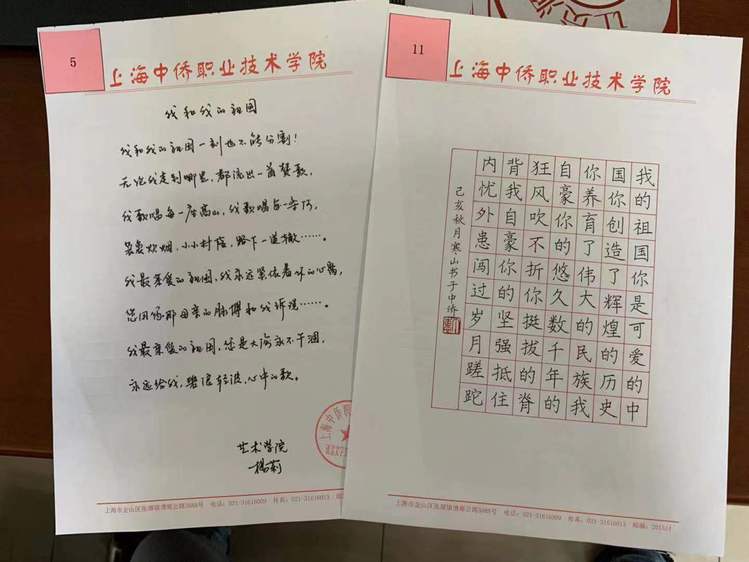 5
上海中侨职业技术学院
我和我的祖国
我和我的祖国一刻也不能分割！
无论我走到哪里，都流出一首赞歌，
我歌唱每一座高山，我歌唱每一条河，
袅袅炊烟，小小村落，路上一道辙……。
我最亲爱的祖国，我永远紧依着你的心窝，
您用您那母亲的脉搏和我诉说……。
我最亲爱的祖国，您是大海永不干涸，
永远给我，碧浪轻波，心中的歌。
艺术学院
杨莉
电话：021-31616009
11
上海中侨职业技术学院
我的祖国你是可爱的中
国你创造了辉煌的历史
你养育了伟大的民族我
自豪你的悠久数千年的
狂风吹不折你挺拔的脊
背我自豪你的坚强抵住
内忧外患闯过岁月蹉跎
己亥秋月寒山书于中侨
电话：021-31616009 传真：021-31616013